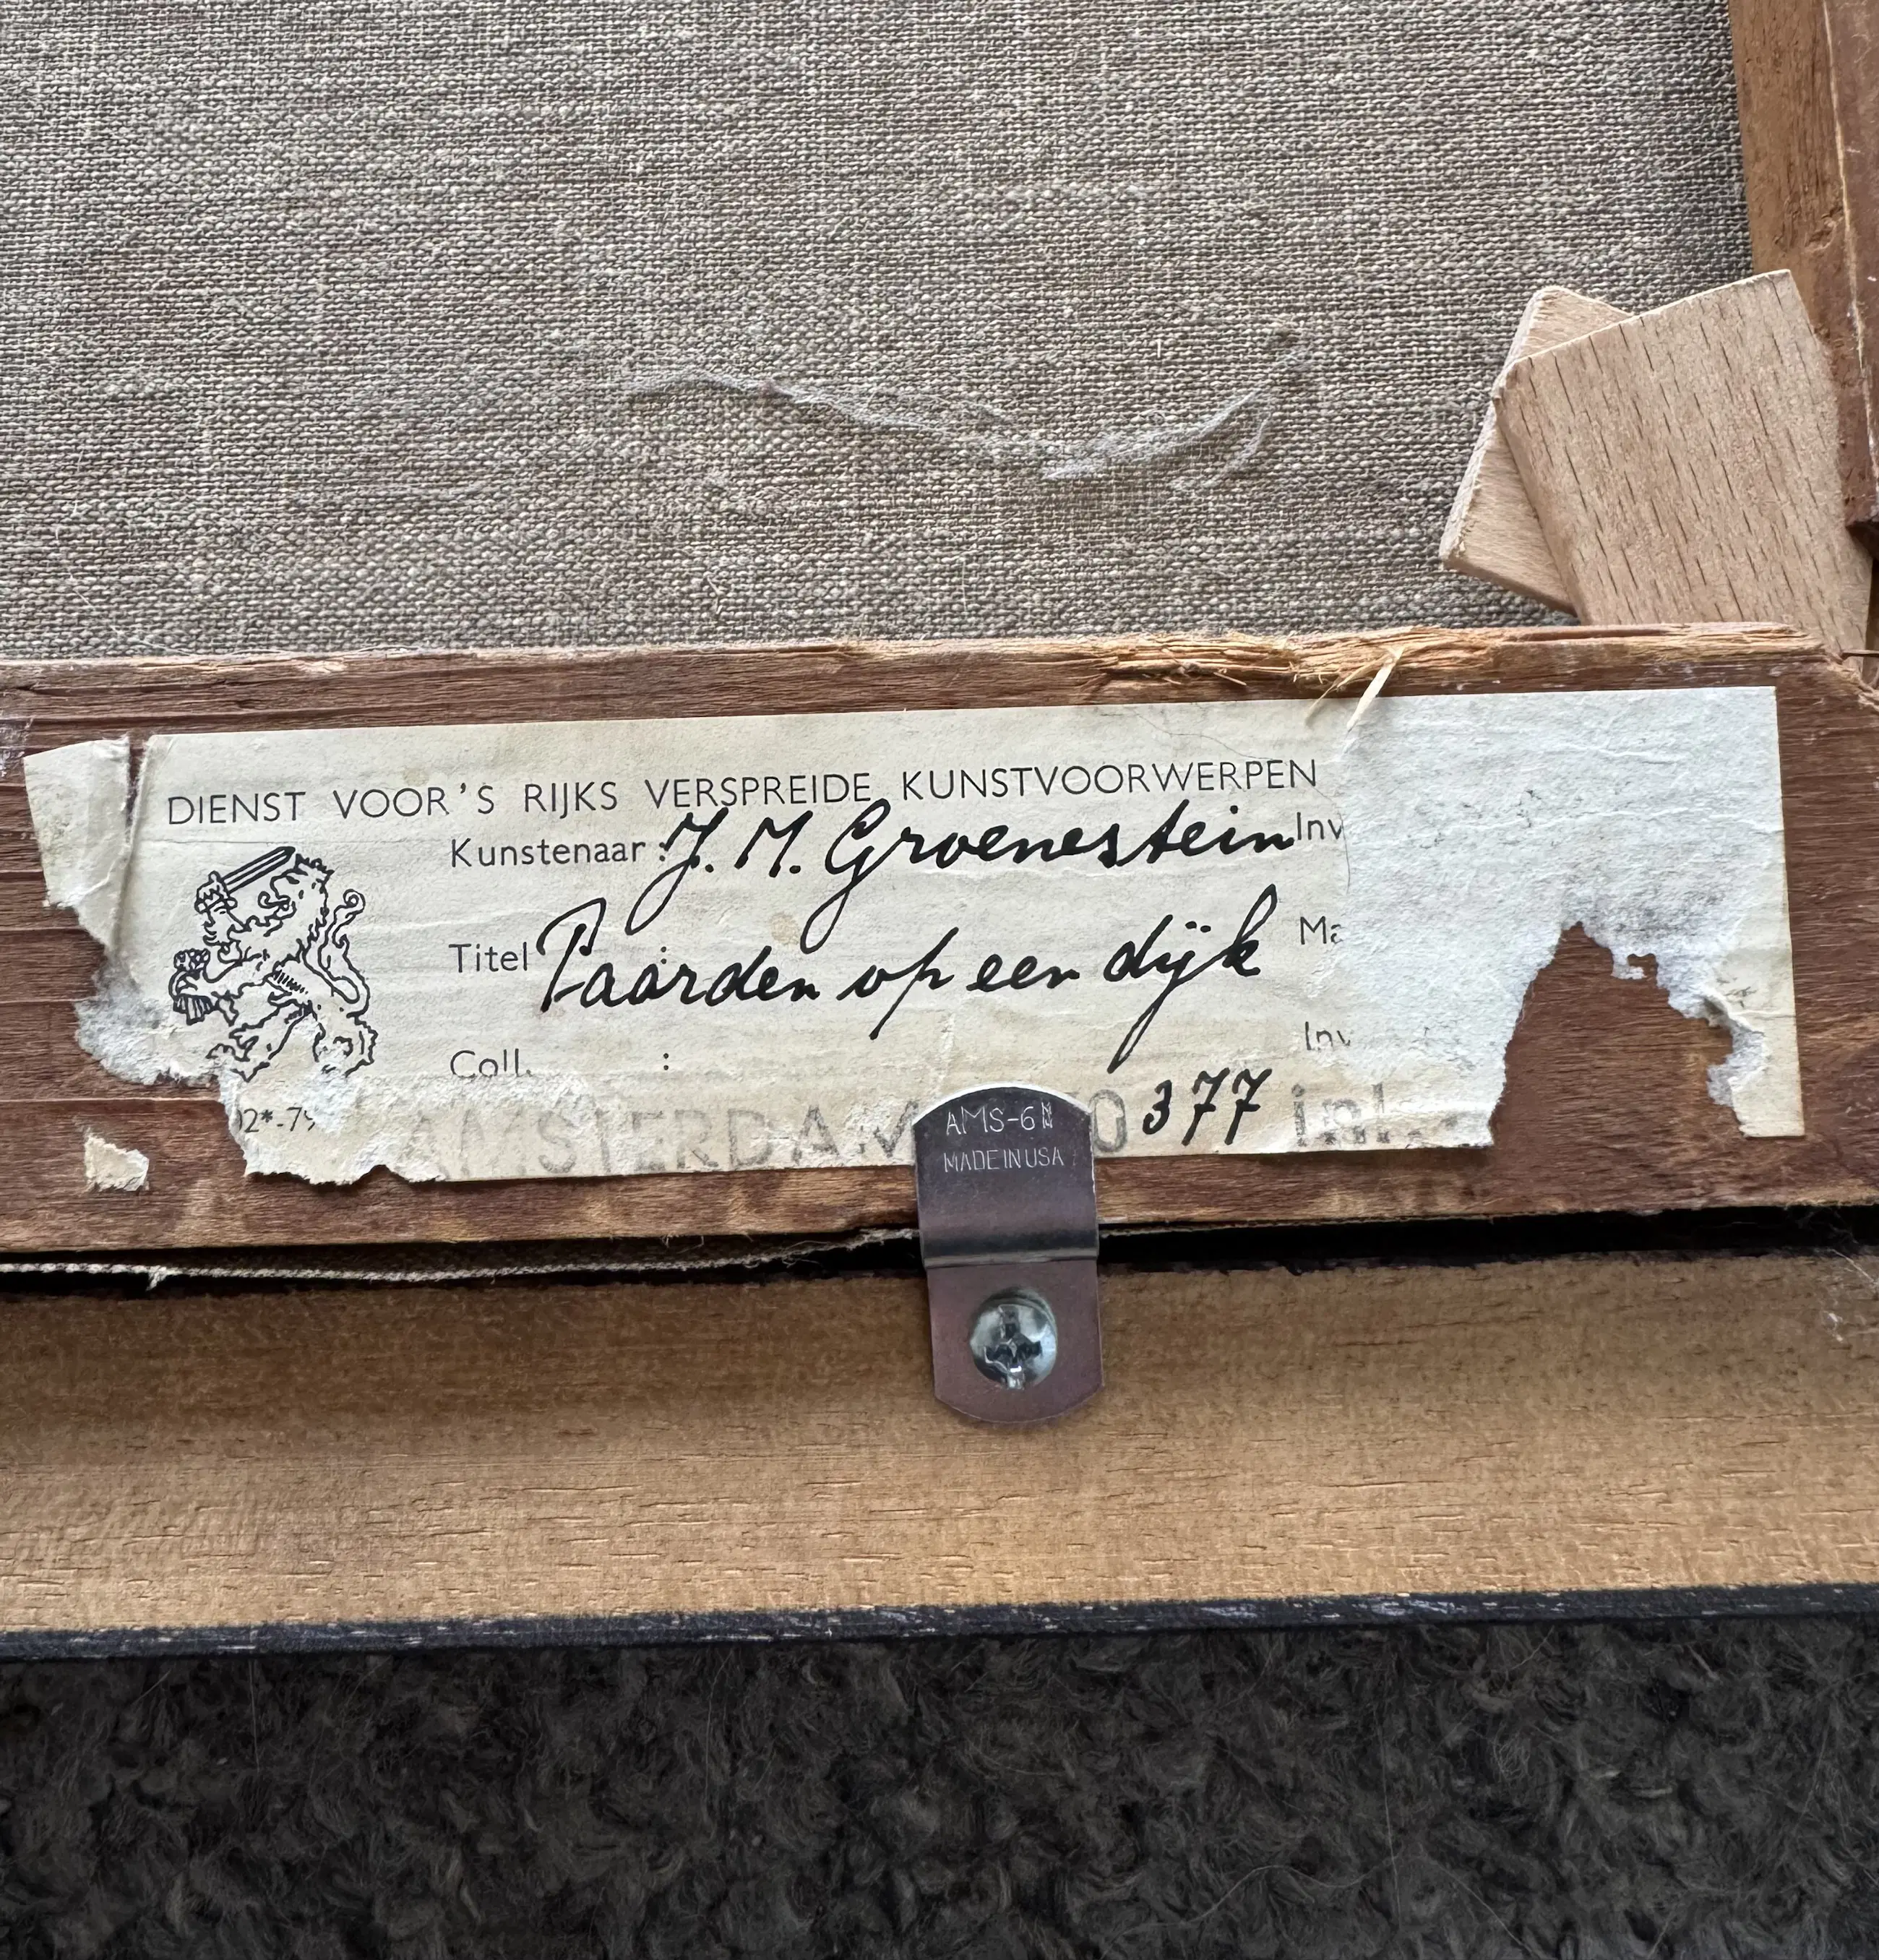 DIENST VOOR'S RIJKS VERSPREIDE KUNSTVOORWERPEN
Kunstenaar : J. M. Groenestein Inv
Titel : Paarden op een dijk Ma
Coll. : Inv
02*-79 AMSTERDAM 0377 inl.
AMS-6
MADE IN USA